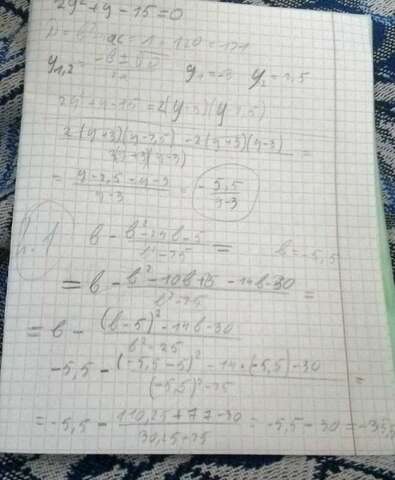 2y²+y-15=0
D=b²-4ac=1+120=121
y₁,₂= y₁=-3 y₂=2,5
2y²+y-15=2(y+3)(y-2,5)
2(y+3)(y-2,5)-2(y+3)(y-3)
=
= y-2,5-y-3 / y-3 = - 5,5 / y-3
2.1 b - b²-24b-5 / b²-25 = b=-5,5
= b - b²-10b+25-14b-30 / b²-25 =
= b - (b-5)²-14b-30 / b²-25
-5,5 - (-5,5-5)²-14*(-5,5)-30 / (-5,5)²-25 =
= -5,5 - 110,25+77-30 / 30,25-25 = -5,5-30=-35,5